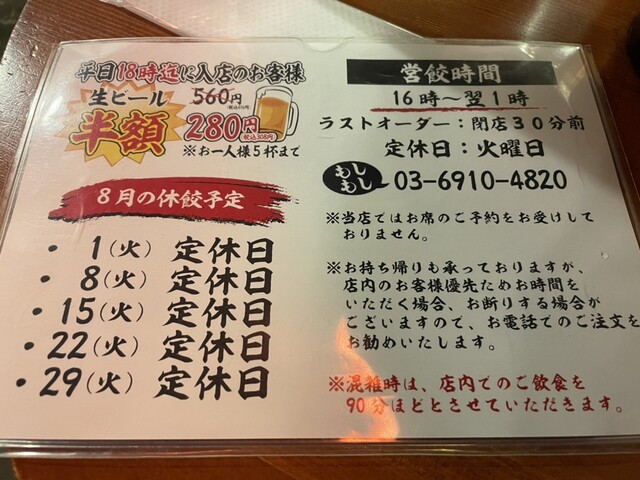 平日18時迄に入店のお客様
生ビール 560円(税込616円)
半額 280円(税込308円)
※お一人様5杯まで
8月の休餃予定
・1(火) 定休日
・8(火) 定休日
・15(火) 定休日
・22(火) 定休日
・29(火) 定休日
営餃時間
16時〜翌1時
ラストオーダー:閉店30分前
定休日:火曜日
もしもし 03-6910-4820
※当店ではお席のご予約をお受けして
おりません。
※お持ち帰りも承っておりますが、
店内のお客様優先ためお時間を
いただく場合、お断りする場合が
ございますので、お電話でのご注文を
お勧めいたします。
※混雑時は、店内でのご飲食を
90分ほどとさせていただきます。